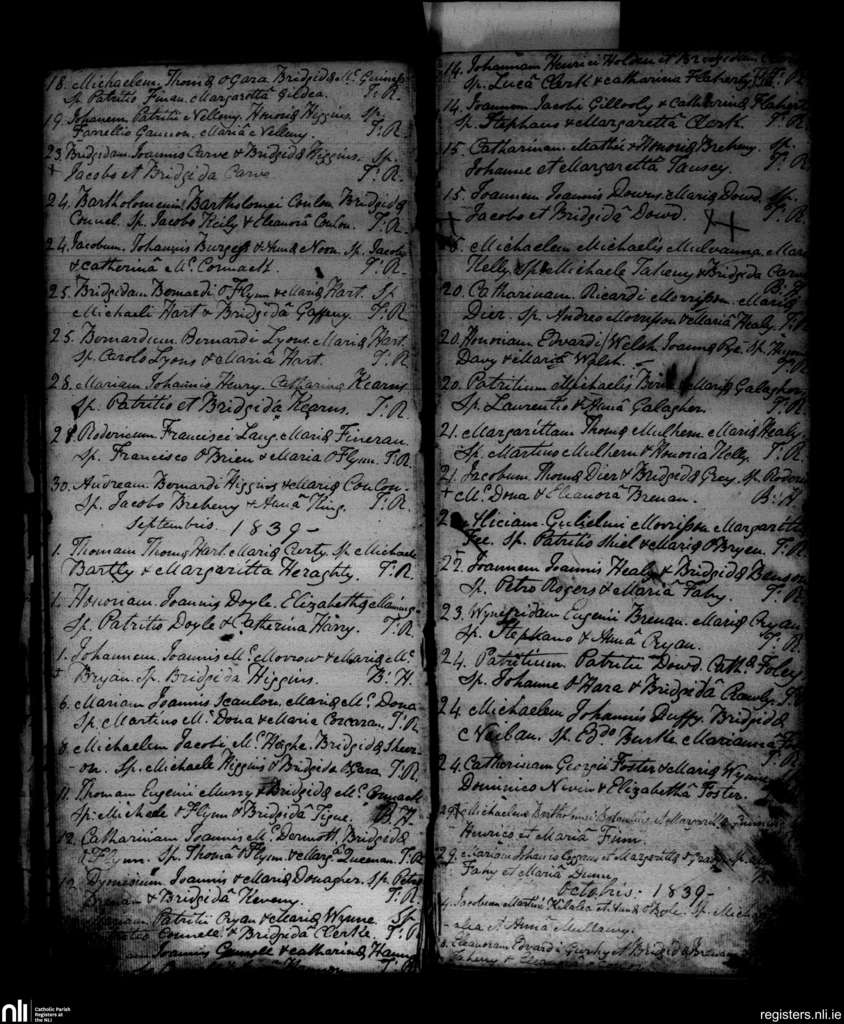 18. Michaelem. Thomæ O Gara Bridgidæ Mc
Sp. Patritio Finan. Margarettâ Gildea. T. R.
19. Johanem. Patritii Nelleny. Honoriæ Higgins. Sp.
Farrellio Gannon. Mariâ Nelleny. T. R.
23. Bridgidam. Joannis Carve & Bridgidæ Higgins. Sp.
+ Jacobo et Bridgida Carve. T. R.
24. Bartholomeum. Bartholomei Conlon. Bridgidæ
Connel. Sp. Jacobo Keily & Eleanorâ Conlon. T. R.
24. Jacobum. Johannis Burgess & Annæ Noon. Sp. Jacobo
& Catherinâ Mc. Cormack. T. R.
25. Bridgidam. Bernardi O Flynn & Mariæ Hart. Sp
Michaeli Hart & Bridgidâ Gaffeny. T. R.
25. Bernardum. Bernardi Lyons. Mariæ Hart.
Sp. Carolo Lyons & Mariâ Hart. T. R.
28. Mariam. Johannis Henry. Catharinæ Kearns
Sp. Patritio et Bridgidâ Kearns. T. R.
Rodericum. Francisci Lang. Mariæ Fineran.
Sp. Francisco O Brien & Maria O Flynn. T. R.
30. Andream. Bernardi Higgins & Mariæ Conlon.
Sp. Jacobo Breheny & Annâ King. T. R.
Septembris. 1839 -
1. Thomam. Thomæ Hart. Mariæ Certy. Sp. Michaele
Bartly & Margaritta Heraghty. T. R.
1. Honoriam. Joannis Doyle. Elizabethæ
Sp. Patritio Doyle & Catherina Harry. T. R.
1. Johannem. Joannis Mc. Morrow & Mariæ Mc.
+ Bryan. Sp. Bridgida Higgins. B. H.
6. Mariam Joannis Scanlon. Mariæ Mc. Dona
Sp. Martino Mc. Dona & Maria Corcoran. T. R.
8. Michaelem Jacobi Mc. Bridgidæ
- on. Sp. Michaele Higgins & Bridgida OGara. T. R.
11. Thomam Eugenii Murry & Bridgidæ Mc. Cormack
Sp. Michaele O Flynn & Bridgidâ Tigue. B. H.
12. Catharinam Joannis Mc. Dermott, Bridgidæ
O Flynn. Sp. Thomâ O Flynn & Margâ Queenan. T. R
Joannis & Mariæ Donagher. Sp. Petro
Brenan & Bridgidâ Keveny. T. R.
Patritii Cryan & Mariæ Wynne. Sp
Connell & Bridgidâ Clerke. T. R
Joannis & Catharinæ
T. R
14. Johannam Henrici Holden et Bridgidæ
Sp. Lucâ Clerk & Catharina Flaherty. T. R
14. Joannem Jacobi Gillooly & Catharinæ Flaherty
Sp. Stephano & Margarettâ Clerk. T. R
15. Catharinam. Mathei & Honoriæ Breheny. Sp.
Johanne et Margarettâ Tansey. T. R
15. Joannem Joannis Downs. Mariæ Dowd. Sp.
+ Jacobo et Bridgidâ Dowd. T. R.
Michaelem Michaelis Mulvanna. Mariæ
Kelly. Sp. Michaele Taheny & Bridgida
B. H
20. Catharinam. Ricardi Morrisson. Mariæ
Dier. Sp. Andreo Morrisson & Mariâ Healy. T. R
20. Honoriam Edvardi Welsh Joannæ Pye. Sp.
Davy & Mariâ Welsh. T. R
20. Patritium Michaelis Mariæ Galagher
Sp. Laurentio & Annâ Galagher. T. R
21. Margarittam Thomæ Mulhern. Mariæ Healy
Sp. Martino Mulhern & Honoria Kelly. T. R
21. Jacobum. Thomæ Dier & Bridgidæ Grey. Sp. Roderic
+ Mc. Dona & Eleanorâ Brenan. B. H.
Aliciam. Gulielmi Morrisson. Margarettæ
Fee. Sp. Patritio Shiel & Mariâ O'Bryen. T. R
22. Joannem Joannis Healy & Bridgidæ Benson
Sp. Petro Rogers & Mariâ Fahy. T. R
23. Winefridam Eugenii Brenan. Mariæ Cryan
Sp. Stephano & Annâ Cryan. T. R
24. Patritium. Patritii Dowd. Cathæ Foley
Sp. Johanne O Hara & Bridgidâ T. R
24. Michaelem Johannis Duffy. Bridgidæ
Neilan. Sp. Eddo Burke Marianna
T. R
24. Catharinam Georgii Foster & Mariæ Wynne
Dominico Niven & Elizabethâ Foster.
29. Michaelem Bartholomei
Henrico et Mariâ Finn.
29. Mariam Johannis et Margarittæ O Grady. Sp.
Fahy et Mariâ Dunn.
Octobris. 1839 -
4. Jacobum Martini Kilalea et Annæ O'Boyle. Sp. Mich
- alea et Annâ Mullany.
Eleanoram Edvardi et Bridgidæ Brenan
Taheny & Eleanora
nli
Catholic Parish
Registers at
the NLI
registers.nli.ie